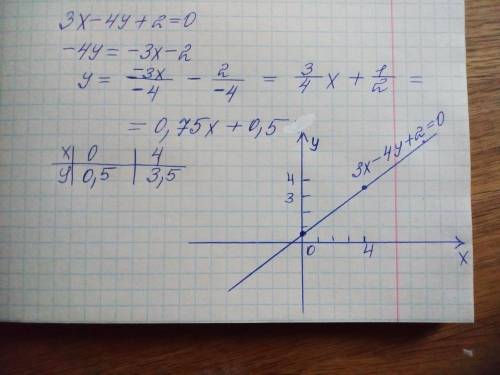 3x-4y+2=0
-4y=-3x-2
y= -3x/-4 - 2/-4 = 3/4 x + 1/2 =
= 0,75x+0,5
x | 0 | 4
y | 0,5 | 3,5
y
3x-4y+2=0
4
3
0 4
x